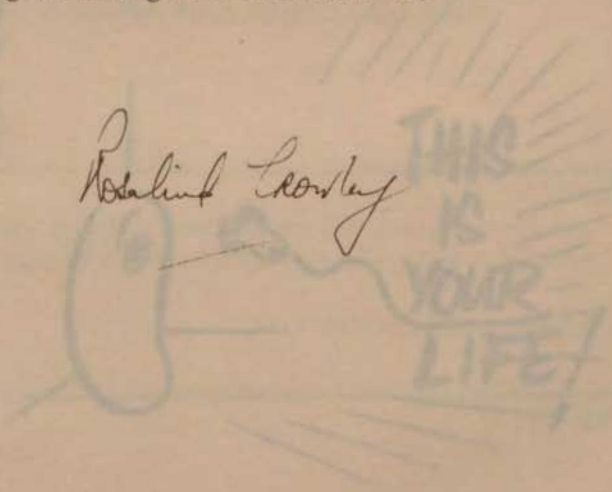 Rosalind Crowley
THIS
IS
YOUR
LIFE!